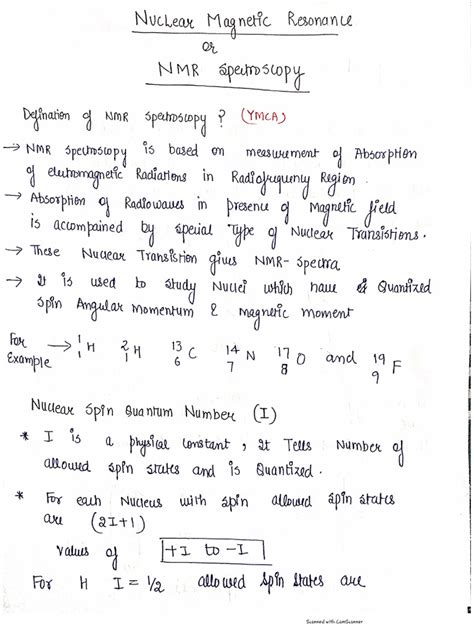 Nuclear Magnetic Resonance
or
NMR Spectroscopy
Defination of NMR Spectroscopy ? (YMCA)
→ NMR Spectroscopy is based on measurement of Absorption
of elutromagnetic Radiations in Radiofrequncy Region.
→ Absorption of Radiowaves in presence of Magnetic field
is accompained by special Type of Nuclear Transistions.
→ These Nuclear Transistion gives NMR-Spectra
→ It is used to study Nuclei which have Quantized
Spin Angular Momentum & magnetic moment
For Example → ¹₁H ²₁H ¹³₆C ¹⁴₇N ¹⁷₈O and ¹⁹₉F
Nuclear Spin Quantum Number (I)
* I is a physical constant, It Tells Number of
allowed spin states and is Quantized.
* For each Nucleus with spin allowed spin states
are (2I+1)
values of +I to -I
For H I = 1/2 allowed spin states are
Scanned with CamScanner